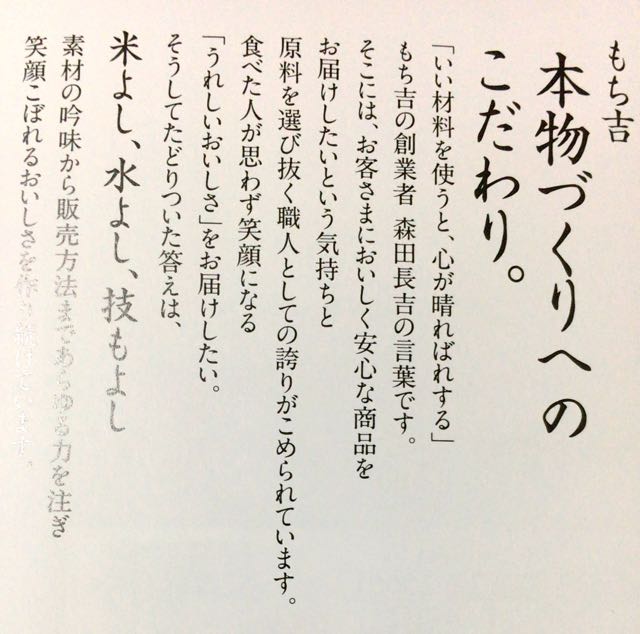 もち吉
本物づくりへの
こだわり。
「いい材料を使うと、心が晴ればれする」
もち吉の創業者 森田長吉の言葉です。
そこには、お客さまにおいしく安心な商品を
お届けしたいという気持ちと
原料を選び抜く職人としての誇りがこめられています。
食べた人が思わず笑顔になる
「うれしいおいしさ」をお届けしたい。
そうしてたどりついた答えは、
米よし、水よし、技もよし
素材の吟味から販売方法まであらゆる力を注ぎ
笑顔こぼれるおいしさを作り続けています。